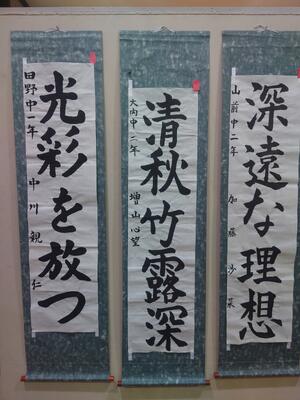 深遠な理想
山前中二年 加藤沙菜
清秋竹露深
大内中二年 増山心望
光彩を放つ
田野中一年 中川親仁